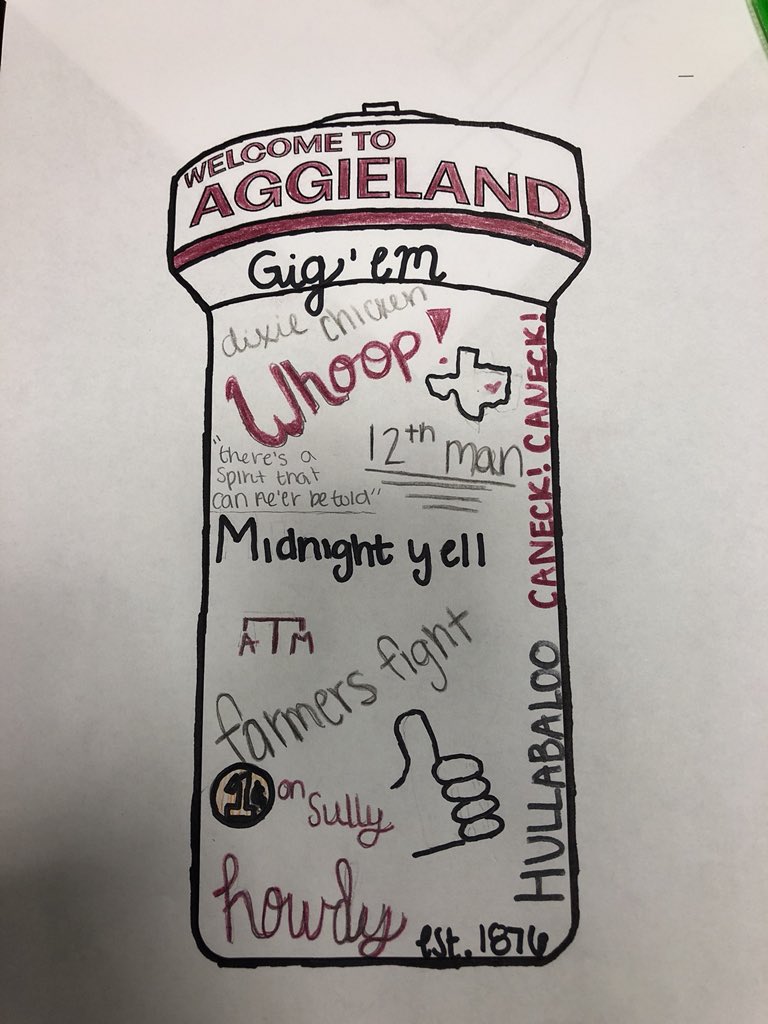 WELCOME TO
AGGIELAND
Gig'em
dixie chicken
Whoop!
12th man
"there's a
spirit that
can ne'er be told"
Midnight yell
CANECK! CANECK!
ATM
farmers fight
HULLABALOO
1¢ on
Sully
howdy
est. 1876